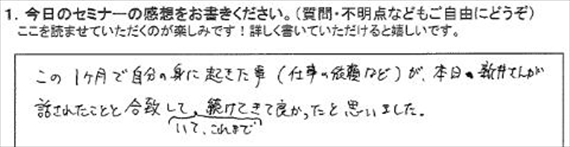 1. 今日のセミナーの感想をお書きください。(質問・不明点などもご自由にどうぞ)
ここを読ませていただくのが楽しみです!詳しく書いていただけると嬉しいです。
この1ヶ月で自分の身に起きた事(仕事の依頼など)が、本日の新井さんが
話されたことと合致して、続けてきて良かったと思いました。
いて、これまで